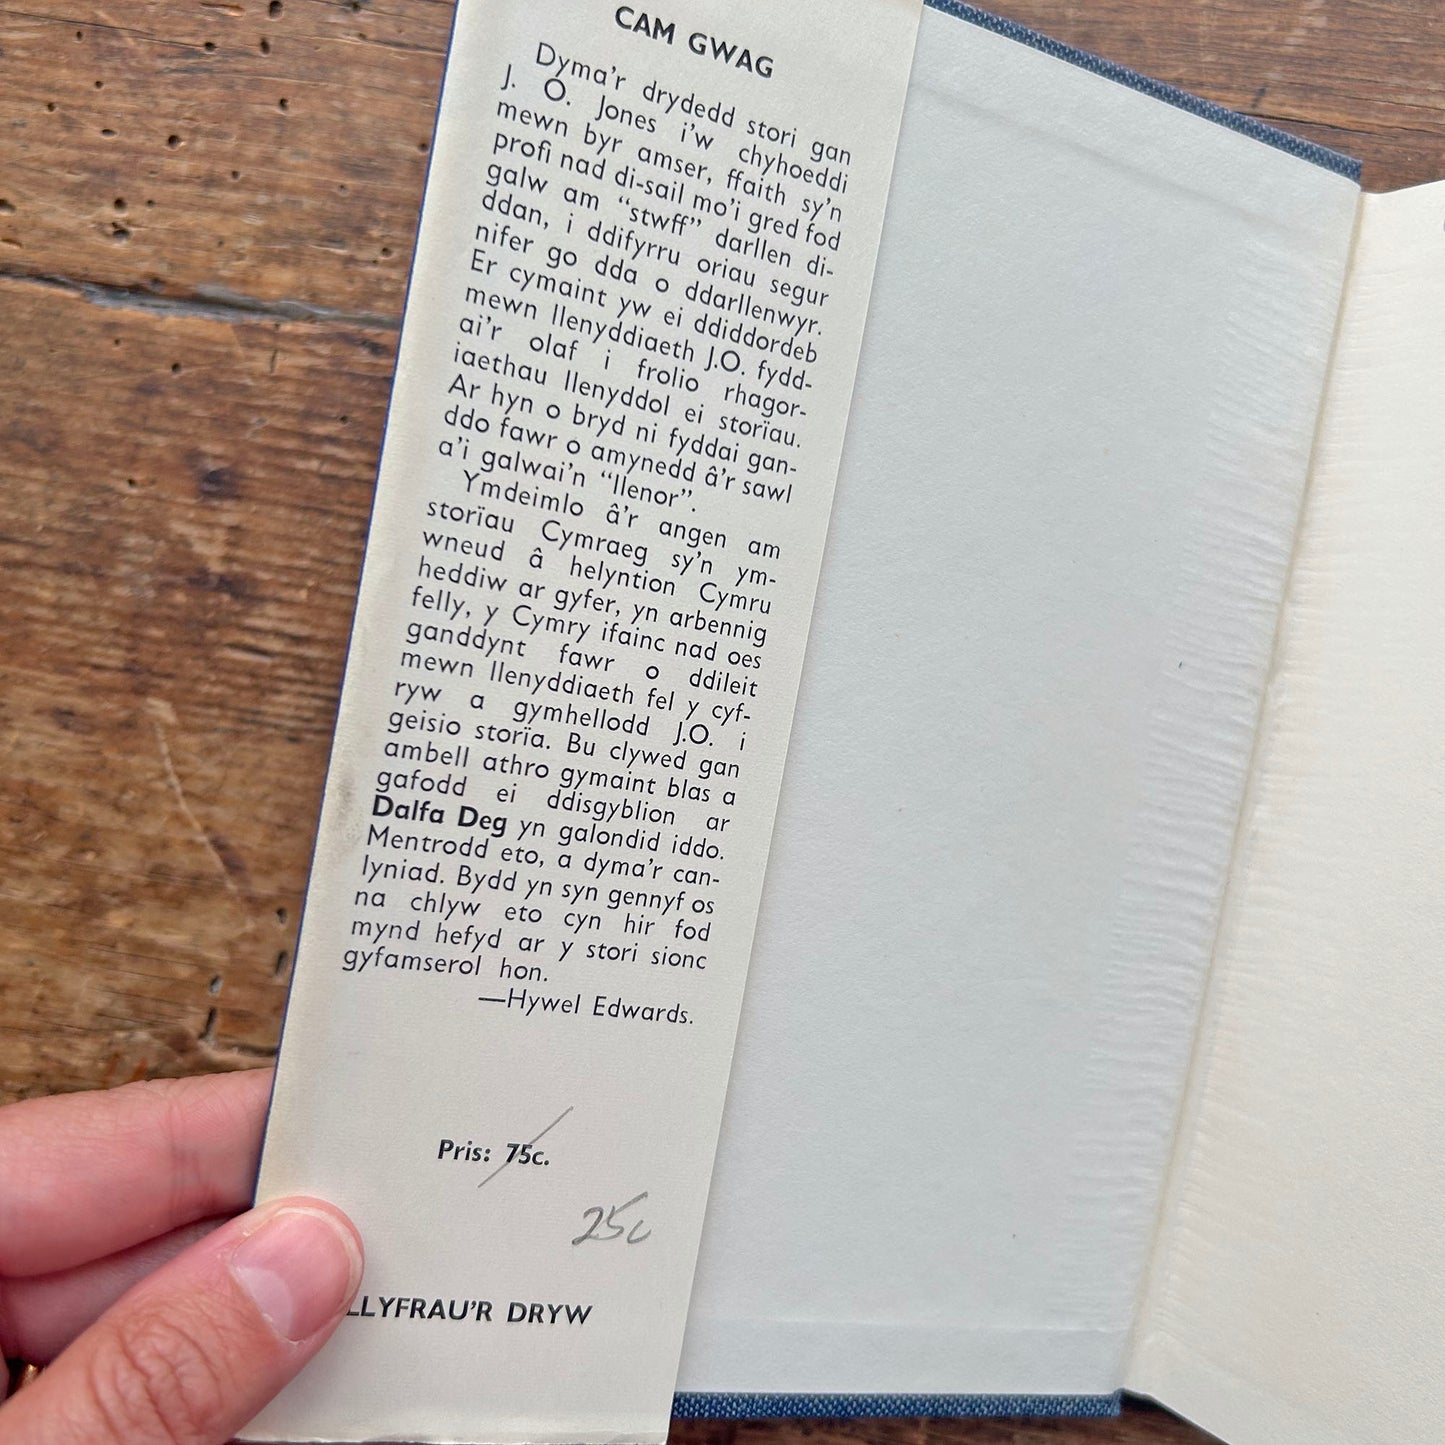 CAM GWAG
Dyma'r drydedd stori gan
J. O. Jones i'w chyhoeddi
mewn byr amser, ffaith sy'n
profi nad di-sail mo'i gred fod
galw am “stwff” darllen di-
ddan, i ddifyrru oriau segur
nifer go dda o ddarllenwyr.
Er cymaint yw ei ddiddordeb
mewn llenyddiaeth J.O. fydd-
ai'r olaf i frolio rhagor-
iaethau llenyddol ei storïau.
Ar hyn o bryd ni fyddai gan-
ddo fawr o amynedd â'r sawl
a'i galwai'n “llenor”.
Ymdeimlo â'r angen am
storïau Cymraeg sy'n ym-
wneud â helyntion Cymru
heddiw ar gyfer, yn arbennig
felly, y Cymry ifainc nad oes
ganddynt fawr o ddileit
mewn llenyddiaeth fel y cyf-
ryw a gymhellodd J.O. i
geisio storïa. Bu clywed gan
ambell athro gymaint blas a
gafodd ei ddisgyblion ar
Dalfa Deg yn galondid iddo.
Mentrodd eto, a dyma'r can-
lyniad. Bydd yn syn gennyf os
na chlyw eto cyn hir fod
mynd hefyd ar y stori sionc
gyfamserol hon.
—Hywel Edwards.
Pris: 75c.
25c
LLYFRAU'R DRYW